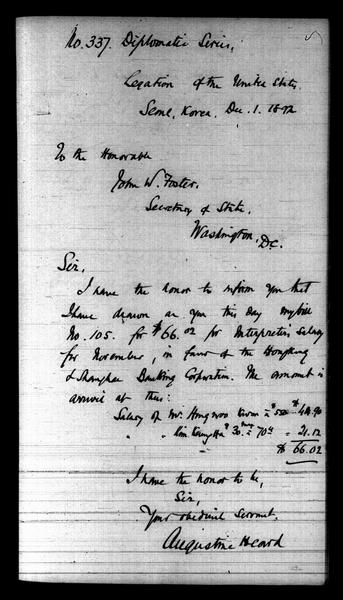 No. 337. Diplomatic Series,
Legation of the United States.
Seoul, Korea, Dec. 1. 1892
To the Honorable
John W. Foster,
Secretary of State,
Washington, D.C.
Sir,
I have the honor to inform you that
I have drawn on you this day my bill
No. 105. for $66.02 for Interpreter's Salary
for November, in favor of the Hongkong
& Shanghai Banking Corporation. The amount is
arrived at thus:
Salary of Mr. Hongwoo $44.90
" " 30 70 = 21.12
$ 66.02
I have the honor to be,
Sir,
Your obedient Servant.
Augustine Heard